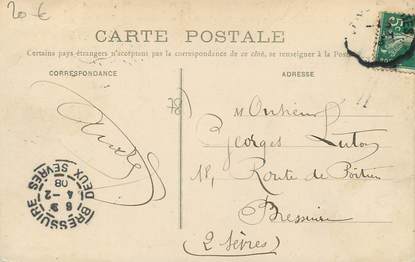 20 €
CARTE POSTALE
Certains pays étrangers n'acceptent pas la correspondance de ce côté, se renseigner à la Poste
CORRESPONDANCE
ADRESSE
Monsieur
Georges
18, Route de Poitiers
Bressuire
(2 Sèvres)
BRESSUIRE
DEUX SÈVRES
08